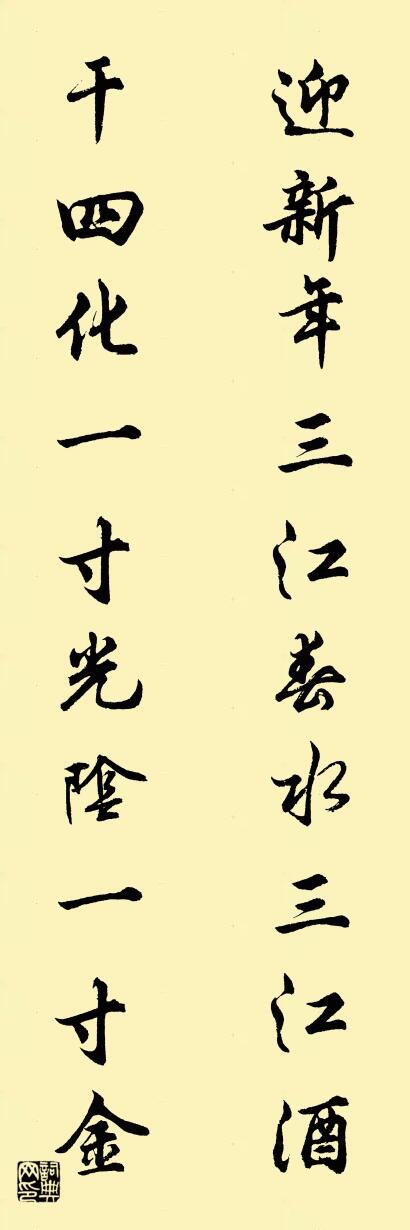 迎新年三江春水三江酒
干四化一寸光陰一寸金
詞典网印